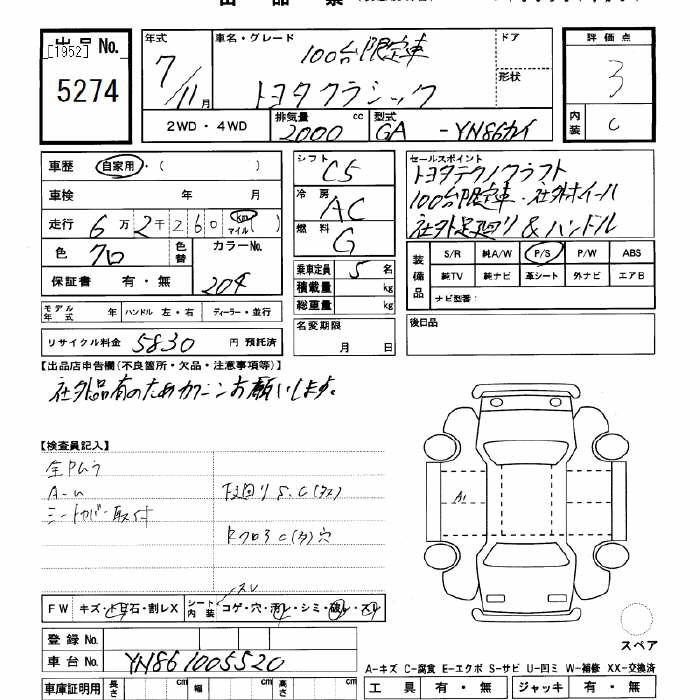 出品No.
[1952]
5274
年式
7/11月
車名・グレード
100台限定車
トヨタクラシック
ドア
形状
評価点
3
内装
C
2WD・4WD
排気量 cc
2000
型式
GA-YN86カイ
車歴 自家用・( )
車検 年 月
走行 6万2千260 km マイル( )
色 クロ
色替
カラーNo.
204
保証書 有・無
シフト C5
冷房 AC
燃料 G
乗車定員 5名
積載量 kg
総重量 kg
セールスポイント
トヨタテクノクラフト
100台限定車・社外ホイール
社外足廻り&ハンドル
装備品
S/R 純A/W P/S P/W ABS
純TV 純ナビ 革シート 外ナビ エアB
ナビ型番:
モデル年式 年 ハンドル 左・右 ディーラー・並行
リサイクル料金 5830 円 預託済
名変期限
月 日
後日品
【出品店申告欄(不良箇所・欠品・注意事項等)】
社外品有のためカクニンお願いします。
【検査員記入】
全Pムラ
A-U
シートカバー取付
下廻りS.C(タス)
RフロアC(タ)穴
A1
FW キズ・ドビ石・割レX
シート内装 コゲ・穴・汚レ・シミ・破レ・スレ
スレ
登録No.
車台No. YN861005520
車庫証明用 長さ cm 幅 cm 高さ cm
スペア
A-キズ C-腐食 E-エクボ S-サビ U-凹ミ W-補修 XX-交換済
工具 有・無 ジャッキ 有・無